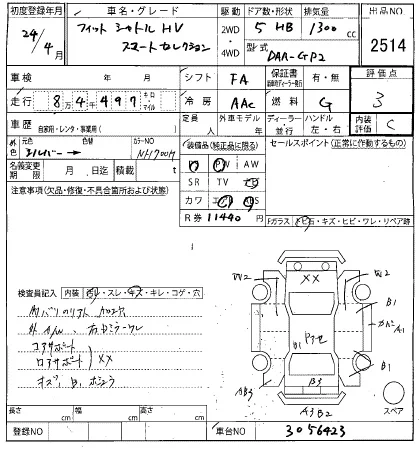 初度登録年月
24/4月
車名・グレード
フィット シャトル HV
スマートセレクション
駆動
2WD
4WD
ドア数・形状
5 HB
排気量
1300 cc
型式
DAA-GP2
出品NO.
2514
車検 年 月
シフト FA
保証書 有・無
評価点
3
走行 8万4千497 キロ・マイル
冷房 AAC
燃料 G
車歴 自家用・レンタ・事業用( )
定員 人
外車モデル 年
ディーラー・並行
ハンドル 左・右
内装評価 C
外色 元色 シルバー 色替 カラーNO NH700M
名義変更期限 月 日迄
積載 t
装備品(純正品に限る)
PW AW
SR TV
カワ
R券 11440 円
セールスポイント(正常に作動するもの)
注意事項(欠品・修復・不具合箇所および状態)
Fガラス トビ石・キズ・ヒビ・ワレ・リペア跡
検査員記入
内装 ・スレ・キズ・キレ・コゲ・穴
コアサポート
ロアサポート XX
XX
W2
W2
B1
A1
B1
B1
Pアセ
B3
AB3
A3 B2
スペア
長さ cm
幅 cm
高さ cm
登録NO
車台NO 3056423